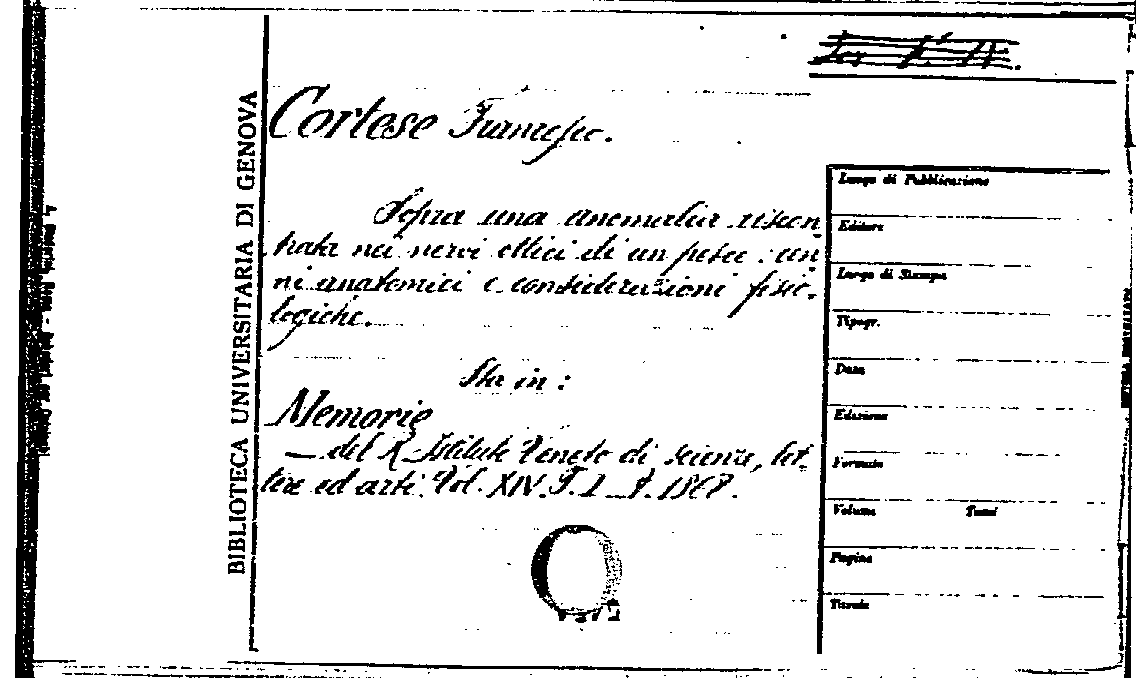 BIBLIOTECA UNIVERSITARIA DI GENOVA
Cortese Francesco.
Sopra una anomalia riscon-
trata nei nervi ottici di un pesce: cen-
ni anatomici e considerazioni fisio-
logiche.
Sta in:
Memorie
— del R. Istituto Veneto di scienze, let-
tere ed arti. Vol. XIV. P. I 1868.
Luogo di Pubblicazione
Editore
Luogo di Stampa
Tipogr.
Data
Edizione
Formato
Volume Tomi
Pagine
Tavole